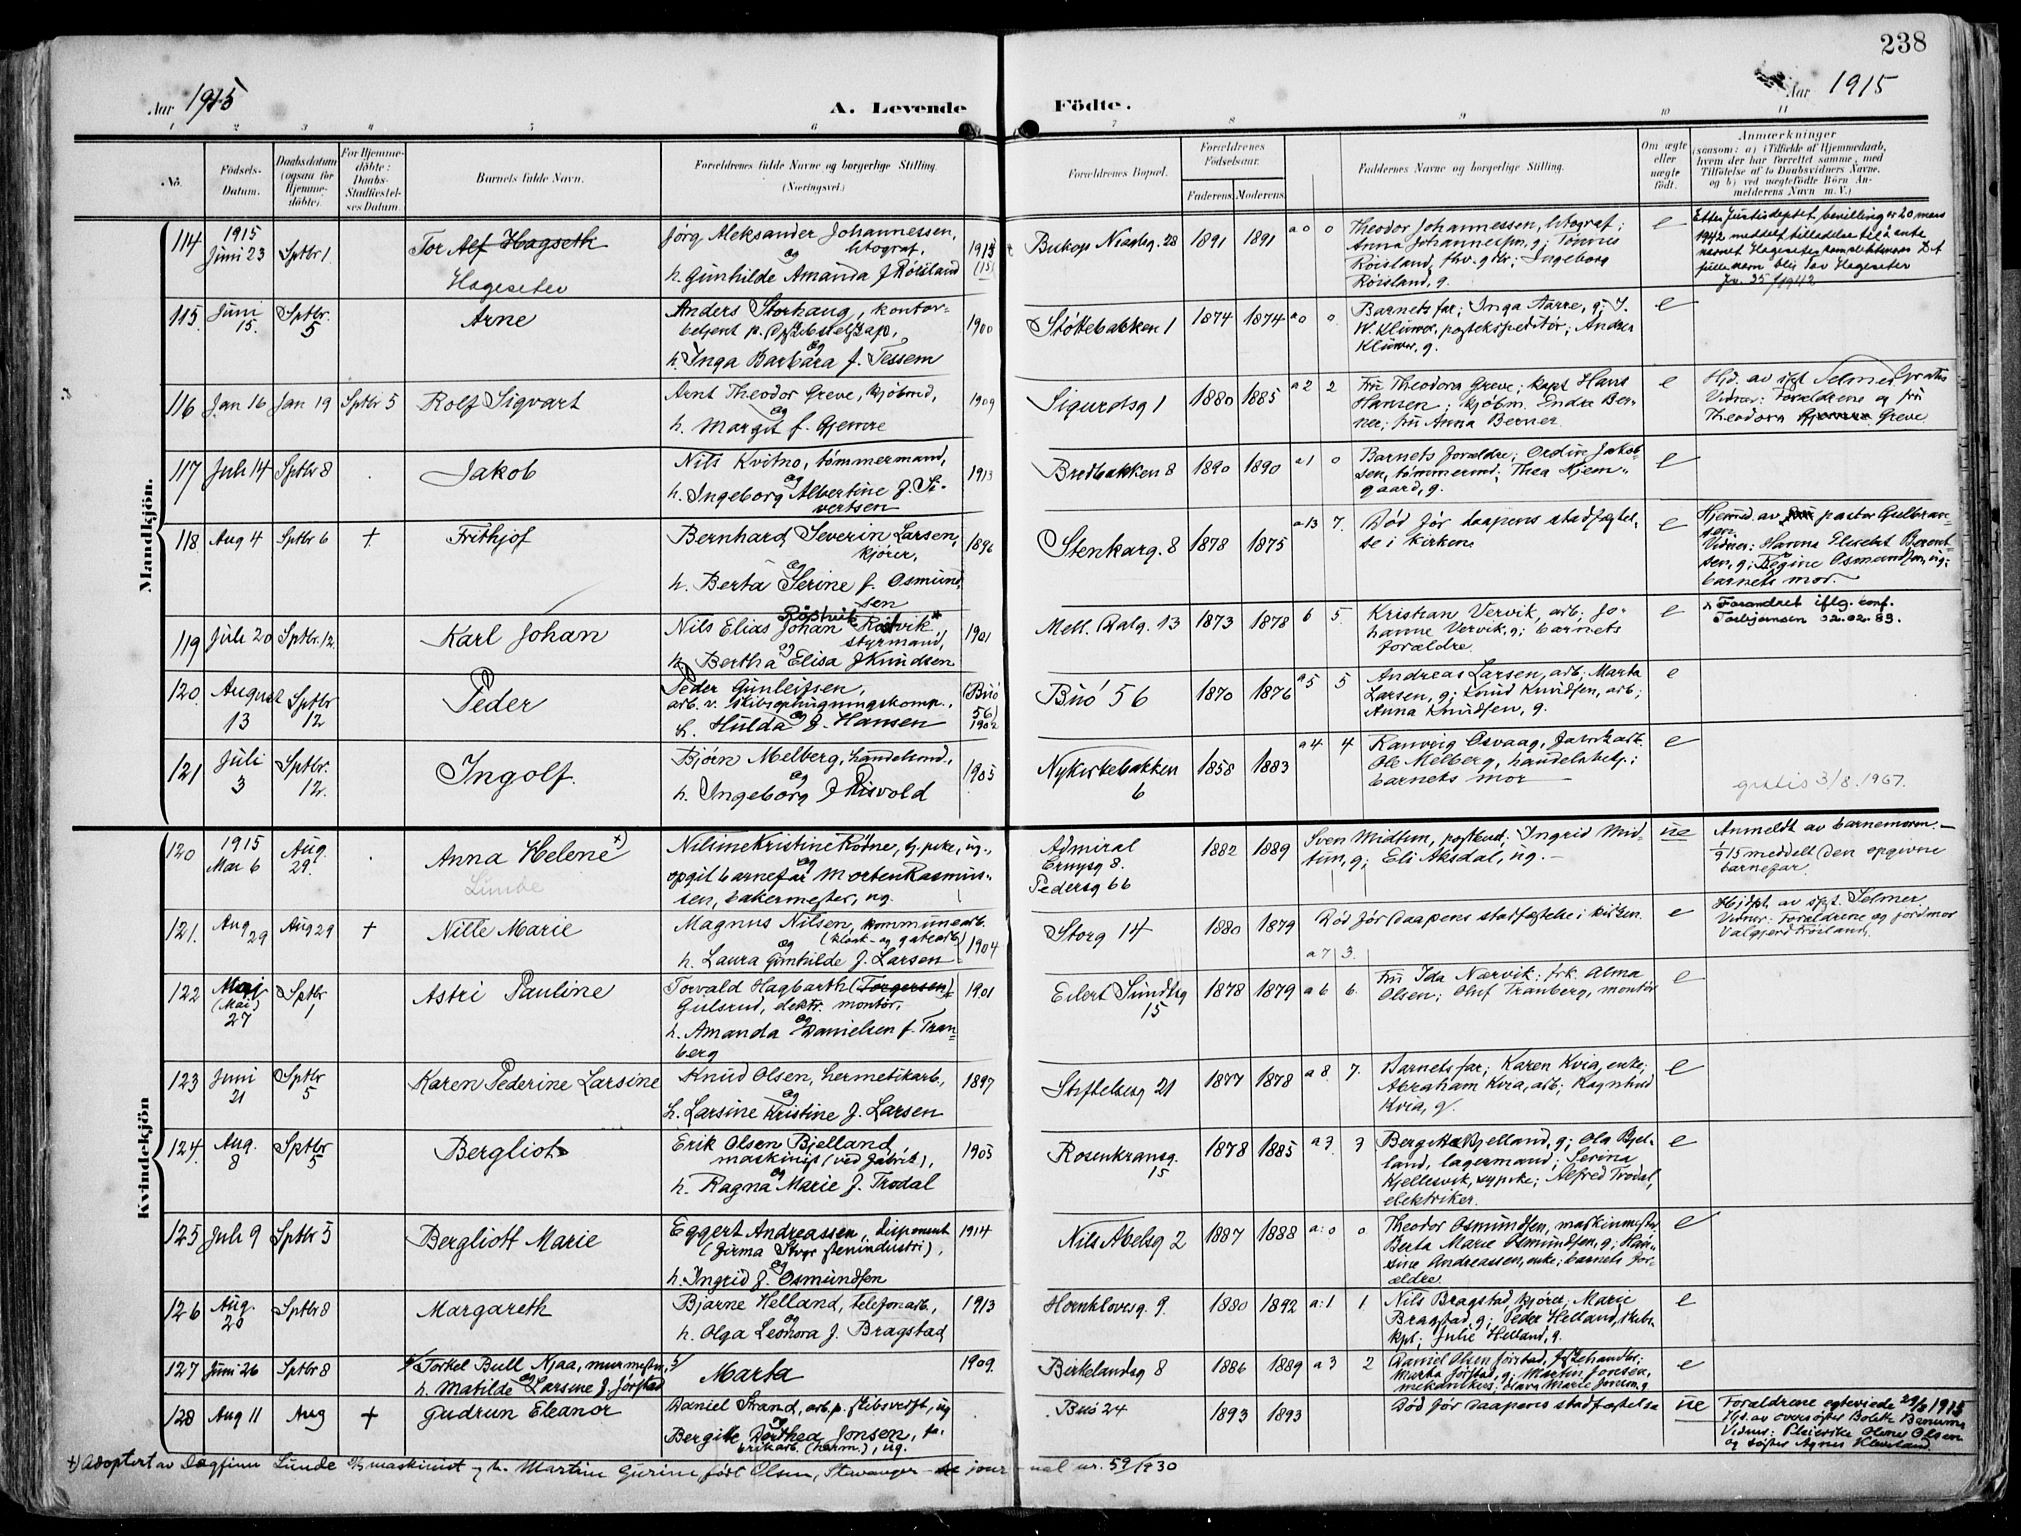 238
Aar 1915
A. Levende
Födte.
Aar 1915
1 2 3 4 5 6 7 8 9 10 11
No.
Födsels-
Datum.
Daabsdatum
(ogsaa for
Hjemme-
döbte).
For Hjemme-
döbte:
Daabs-
Stadfæstel-
ses Datum.
Barnets fulde Navn.
Forældrenes fulde Navne og borgerlige Stilling.
(Næringsvei.)
Forældrenes Bopæl.
Forældrenes
Födselsaar.
Faderens. Moderens.
Faddernes Navne og borgerlige Stilling.
Om ægte
eller
uægte
födt.
Anmærkninger
(saasom: a) i Tilfælde af Hjemmedaab,
hvem der har forrettet samme, med
Tilföielse af to Daabsvidners Navne,
og b) ved uægtefödte Börn An-
melderens Navn m. V.)
Mandkjön.
114 1915 Juni 23 Sptbr 1
Tor Alf Hagseth
Hageseter
Jörg Aleksander Johannessen,
litograf,
og
h. Gunhilde Amanda f Röisland
1915
Bukop Nisdlsg. 28 1891 1891 a 0 0
Theodor Johannessen, litograf;
Röisland, g.
e
115. Juni 15. Sptbr. 5
Arne
Anders Storhaug, kontor-
betjent
og
h. Inga Barbara f. Tessem
1900
Støttebakken 1 1874 1874 a 0 0
Barnets far; Inga Aarre, g; J.
W. Klüwer, postekspeditör; Andrea
Klüwer, g.
e
116 Jan 16 Jan 19 Sptbr 5
Rolf Sigvart
Arnt Theodor Greve, kjøbmd,
og
h. Margit f. Gjemre
1909
Sigurdsg 1 1880 1885 a 2 2
Fru Theodora Greve; kapt Hans
Hansen; kjøbm. Endre Ber-
ner; fru Anna Berner
e
Hjd. av spt Selmer Gratis
Vidner: Forældrene og fru
Theodora Greve
117 Juli 14 Sptbr 8
Jakob
Nils Kvitno, tømmermand,
og
h. Ingeborg Albertine f. Si-
vertsen
1913
Bredbakken 8 1890 1890 a 1 0
Barnets forældre; Ordin Jakob-
sen, tømmermd; Thea Hjem-
gaard, g.
e
118 Aug 4 Sptbr 6 +
Frithjof
Bernhard Severin Larsen,
kjører,
og
h. Berta Serine f. Osmund-
sen
1896
Stenkarg. 8 1878 1875 a 13 7.
Død før daapens stadfæstel-
se i kirken
e
Hjemmed av pastor Gulbran-
sen.
Vidner: Hanna Elisebet Berent-
sen, g; Regine Osmundsen, ug;
barnets mor.
119 Juli 20 Sptbr. 12
Karl Johan
Röstvik
Nils Elias Johan Rostvik
styrmand,
og
h. Bertha Elisa f Knudsen
1901
Mell. Dalg. 13 1873 1878 6 5
Kristian Vervik, arb; Jo-
hanne Vervik, g; barnets
forældre.
e
Forandret iflg. conf.
Torbjørnsen 02.02.83.
120. August 13 Sptbr 12
Peder
Peder Gunleifsen,
arb. v. skibsophugningskomp.,
og
h. Hulda f. Hansen
(Buö
56)
1902
Buö 56 1870 1876 a 5 5
Andreas Larsen, arb; Marta
Larsen, g; Knud Knudsen, arb;
Anna Knudsen, g.
e
121 Juli 3 Sptbr. 12.
Ingolf.
Bjørn Melberg, handelsmd,
og
h. Ingeborg f Risvold
1905
Nykirkebakken
6
1858 1883 a 4 4
Ranveig Osvaag, fabrikarb.
Ole Melberg, handelsbetj.;
barnets mor
e
gratis 3/8. 1967.
Kvindekjön
120 1915 Mai 6 Aug. 29.
Anna Helene +)
Lunde
Niline Kristine Rødne, tj. pike, ug.,
og
opgit barnefar Morten Rasmus-
sen, bakermester, ug.
Admiral
Pedersg 66
1882 1889
Sven Midtun, postbud; Ingrid Mid-
tun, g; Eli Aksdal, ug.
ue
Anmeldt av barnemoren.
1/9 15 meddelt den opgivne
barnefar.
121. Aug 29 Aug 29 +
Nille Marie
Magnus Nilsen, kommunearb.
(kloak- og gatearb)
og
h. Laura Gunhilde f. Larsen
1904
Storg 14 1880 1879
a 7 3.
Død før daapens stadfæstelse i kirken.
e
Hjdpt. av spt. Selmer
Vidner: Forældrene og jordmor
Valgjerd Frøisland,
122 Mai (Mai) 27 Sptbr 1
Astri Pauline
Torvald Hagbarth (Torgersen)
Gulsrud, elektr. montör,
og
h. Amanda Danielsen f. Tran-
berg
1901
Eilert Sundtsg
15
1878 1879 a 6 6.
Fru Ida Nærvik; frk. Alma
Olsen; Oluf Tranberg, montör
e
123 Juni 21 Sptbr 5
Karen Pederine Larsine
Knud Olsen, hermetikarb,
og
h. Larsine Kristine f. Larsen
1897
Stiftelsesg 21 1877 1878 a 8. 7.
Barnets far; Karen Kvia, enke;
Abraham Kvia, arb; Ragnhild
Kvia, g.
e
124. Aug. 8 Sptbr 5
Bergliot
Erik Olsen Bjelland,
maskinist (ved fabrik),
og
h. Ragna Marie f. Trodal
1905
Rosenkransg.
15
1878 1885 a 3. 3
Bergitte Bjelland, g; Ola Bjel-
land, lagermand; Serina
Kjellesvik, sypike; Alfred Trodal,
elektriker.
e
125 Juli 9 Sptbr 5
Bergliott Marie
Eggert Andreassen, disponent
(firma Stvgr stenindustri),
og
h. Ingrid f. Osmundsen
1914
Nils Abelsg 2 1887 1888 a: 0 0
Theodor Osmundsen, maskinmester
Berta Marie Osmundsen, g; Han-
sine Andreassen, enke; barnets for-
ældre
e
126 Aug. 20 Sptbr 8
Margareth
Bjarne Helland, telefonarb,
og
h. Olga Leonora f. Bragstad
1913
Hornklovesg. 9. 1880 1892 a: 1 1.
Nils Bragstad, kjører; Marie
Bragstad, g; Peder Helland, skibs-
kpt; Julie Helland, g.
e
127 Juni 26 Sptbr 8
Torkel Bull Njaa, murmester,
og
h. Matilde Larsine f. Jørstad
Marta
1909.
Birkelandsg 8 1886 1889 a 3 2
Daniel Olsen Jørstad,
Marta Jørstad, g; Martin Joresen,
e
128 Aug 11 Aug +
Gudrun Eleanor
Daniel Strand, arb. p. skibsverft, ug
og
Bergitte Dorthea Jonsen, fa-
brikarb. (herm.), ug.
Buö 24 1893 1893
Død før daapens stadfæstelse
ue
Forældrene egteviede 29/8 1915
Hjd. av oversøster Bolette
og søster Agnes
+) Adoptert av Dagfinn Lunde maskinist og h. Martine Gurine født Olsen, Stavanger - se jour-nal nr. 59/1930